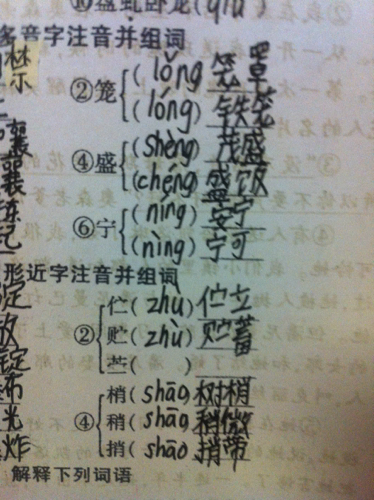 ⑩盘虬卧龙(qiú)
多音字注音并组词
②笼(lǒng) 笼罩
(lóng) 铁笼
④盛(shèng) 茂盛
(chéng) 盛饭
⑥宁(níng) 安宁
(nìng) 宁可
形近字注音并组词
②伫(zhù) 伫立
贮(zhù) 贮蓄
苎( )
④梢(shāo) 树梢
稍(shāo) 稍微
捎(shāo) 捎带
解释下列词语
放
锭
布
光
炸